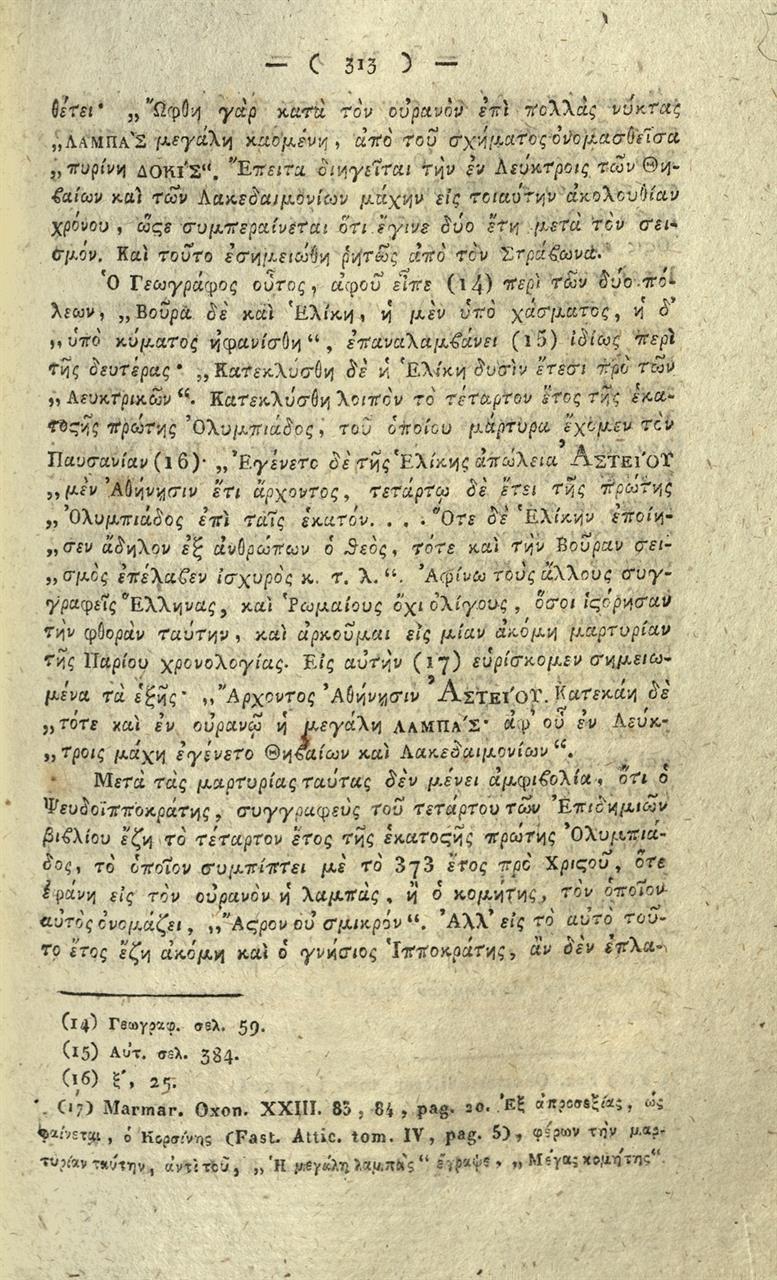 — ( 313 ) —
θέτει· „Ὤφθη γὰρ κατὰ τὸν οὐρανὸν ἐπὶ πολλὰς νύκτας
„ΛΑΜΠΑ`Σ μεγάλη καομένη, ἀπὸ τοῦ σχήματος ὀνομασθεῖσα
„πυρίνη ΔΟΚΙ`Σ“. Ἔπειτα διηγεῖται τὴν ἐν Λεύκτροις τῶν Θη-
βαίων καὶ τῶν Λακεδαιμονίων μάχην εἰς τοιαύτην ἀκολουθίαν
χρόνου, ὥϛε συμπεραίνεται ὅτι ἔγινε δύο ἔτη μετὰ τὸν σει-
σμόν. Καὶ τοῦτο ἐσημειώθη ῥητῶς ἀπὸ τὸν Στράβωνα.
Ὁ Γεωγράφος οὗτος, ἀφοῦ εἶπε (14) περὶ τῶν δύο πό-
λεων, „Βοῦρα δὲ καὶ Ἑλίκη, ἡ μὲν ὑπὸ χάσματος, ἡ δ'
„ὑπὸ κύματος ἠφανίσθη“, ἐπαναλαμβάνει (15) ἰδίως περὶ
τῆς δευτέρας· „Κατεκλύσθη δὲ ἡ Ἑλίκη δυσὶν ἔτεσι πρὸ τῶν
„Λευκτρικῶν“. Κατεκλύσθη λοιπὸν τὸ τέταρτον ἔτος τῆς ἑκα-
τοϛῆς πρώτης Ὀλυμπιάδος, τοῦ ὁποίου μάρτυρα ἔχομεν τὸν
Παυσανίαν (16)· „Ἐγένετο δὲ τῆς Ἑλίκης ἀπώλεια ἈΣΤΕΙ´ΟΥ
„μὲν Ἀθήνησιν ἔτι ἄρχοντος, τετάρτῳ δὲ ἔτει τῆς πρώτης
„Ὀλυμπιάδος ἐπὶ ταῖς ἑκατόν. . . . Ὅτε δὲ Ἑλίκην ἐποίη-
„σεν ἄδηλον ἐξ ἀνθρώπων ὁ θεὸς, τότε καὶ τὴν Βοῦραν σει-
„σμὸς ἐπέλαβεν ἰσχυρὸς κ. τ. λ.“. Ἀφίνω τοὺς ἄλλους συγ-
γραφεῖς Ἕλληνας, καὶ Ῥωμαίους ὄχι ὀλίγους, ὅσοι ἱϛόρησαν
τὴν φθορὰν ταύτην, καὶ ἀρκοῦμαι εἰς μίαν ἀκόμη μαρτυρίαν
τῆς Παρίου χρονολογίας. Εἰς αὐτὴν (17) εὑρίσκομεν σημειω-
μένα τὰ ἑξῆς· „Ἄρχοντος Ἀθήνησιν ἈΣΤΕΙ´ΟΥ. Κατεκάη δὲ
„τότε καὶ ἐν οὐρανῷ ἡ μεγάλη ΛΑΜΠΑ´Σ· ἀφ' οὗ ἐν Λεύκ-
„τροις μάχη ἐγένετο Θηβαίων καὶ Λακεδαιμονίων“.
Μετὰ τὰς μαρτυρίας ταύτας δὲν μένει ἀμφιβολία, ὅτι ὁ
Ψευδοϊπποκράτης, συγγραφεὺς τοῦ τετάρτου τῶν Ἐπιδημιῶν
βιβλίου ἔζη τὸ τέταρτον ἔτος τῆς ἑκατοϛῆς πρώτης Ὀλυμπιά-
δος, τὸ ὁποῖον συμπίπτει μὲ τὸ 373 ἔτος πρὸ Χριϛοῦ, ὅτε
ἐφάνη εἰς τὸν οὐρανὸν ἡ λαμπὰς, ἢ ὁ κομήτης, τὸν ὁποῖον
αὐτὸς ὀνομάζει, „Ἄϛρον οὐ σμικρόν“. Ἀλλ' εἰς τὸ αὐτὸ τοῦ-
το ἔτος ἔζη ἀκόμη καὶ ὁ γνήσιος Ἱπποκράτης, ἂν δὲν ἐπλα-
(14) Γεωγραφ. σελ. 59.
(15) Αὐτ. σελ. 384.
(16) ξ', 25.
(17) Marmar. Oxon. XXIII. 83, 84, pag. 20. Ἐξ ἀπροσεξίας, ὡς
φαίνεται, ὁ Κορσίνης (Fast. Attic. tom. IV, pag. 5), φέρων τὴν μαρ-
τυρίαν ταύτην, ἀντὶ τοῦ, „Ἡ μεγάλη λαμπὰς“ ἔγραψε, „Μέγας κομήτης“.